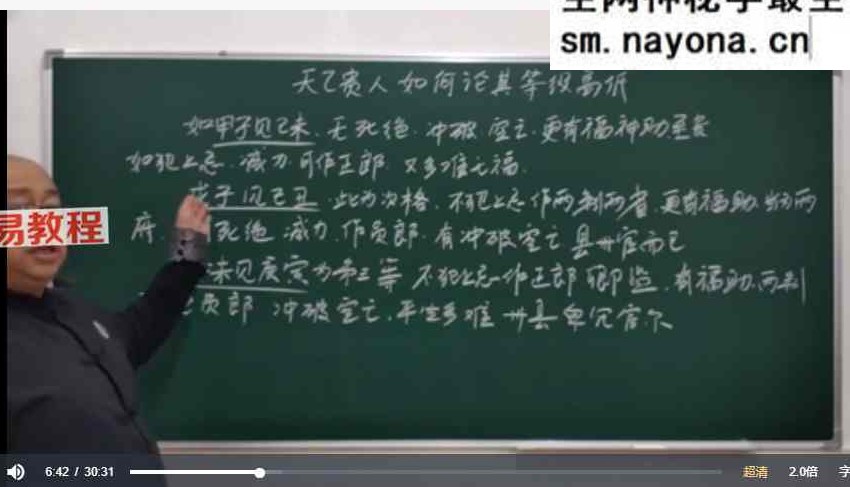 全网神秘学最全
sm.nayona.cn
天乙贵人如何论其等级高低
如甲子见己未、无死绝、冲破空亡、更有福神助至贵
如犯上忌、减力可作正郎、又多难七福、
戊子见己丑、此为次格、不犯上忌作两制两省、更有福助、当为两
府、死绝减力、作员郎、有冲破空亡县州官而已
未见庚寅为第三等 不犯上忌作正郎卿监、有福助、两制
员郎 冲破空亡、平生多难 州县卑冗官尔
易教程
6:42 / 30:31
超清
2.0倍
字